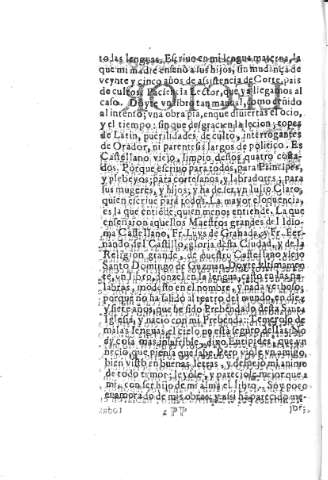 to las lenguas. Escriuo en mi lengua materna, la
que mi madre enseñò a sus hijos, sin mudança de
veynte y cinco años de assistencia de Corte, pais
de cultos. Paciencia Lector, que ya llegamos al
caso. Doyte vn libro tan manual, como ceñido
al intento; vna obra pia, en que diuiertas el ocio,
y el tiempo: sin que desgracien la leccion, topes
de Latin, puerilidades, de culto, interrogantes
de Orador, ni parentesis largos de politico. Es
Castellano viejo, limpio de sus quatro costa-
dos. Porque escriuo para todos, para Principes,
y plebeyos; para cortesanos, y labradores; para
sus mugeres, y hijos; y ha de ser vn Iulio Claro,
quien escriue para todos. La mayor eloquencia,
es la que entiẽde, quien menos entiende. La que
enseñaron aquellos Maestros grandes del Idio-
ma Castellano, Fr. Luys de Granada, y Fr. Fer-
nando del Castillo, gloria desta Ciudad, y de la
Religion grande, de nuestro Castellano viejo
Santo Domingo de Guzman. Doyte vltimamen
te, vn libro, fonze en la lengua, casto en las pa-
labras, modesto en el nombre, y nada verboso;
porque no ha salido al teatro del mundo, en diez
y siete años, que he sido Prebendado desta Santa
Iglesia, y nace con mi Prebenda. Temeroso de
malas lenguas el
dixo Euripides, que vn
necio, que piensa que sabe. Pero viole vn amigo,
bien visto en buenas letras, y despejò mi animo
de todo temor; leyóle, y pareciole mejor que a
mi, con ser hijo de mi alma el libro. Soy poco
enamorado de mis obras; y assi ha parecido me-
2 ¶¶ jor,